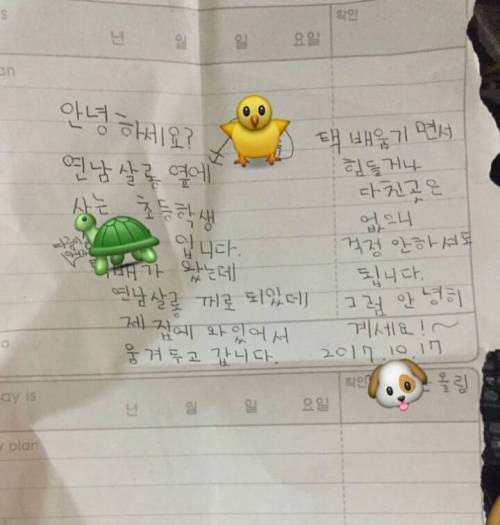 s
확인
년 일 일 요일
an
안녕하세요?
연남살롱 옆에
사는 초등학생
입니다.
배가 왔는데
연남살롱 꺼로 되있데
제 집에 와있어서
웅겨두고 갑니다.
택배웅기면서
힘들거나
다친곳은
없으니
걱정 안하셔도
됩니다.
그럼 안녕히
계세요!~
2017.10.17
올림
o
ay is
확인
년 일 일 요일
y plan